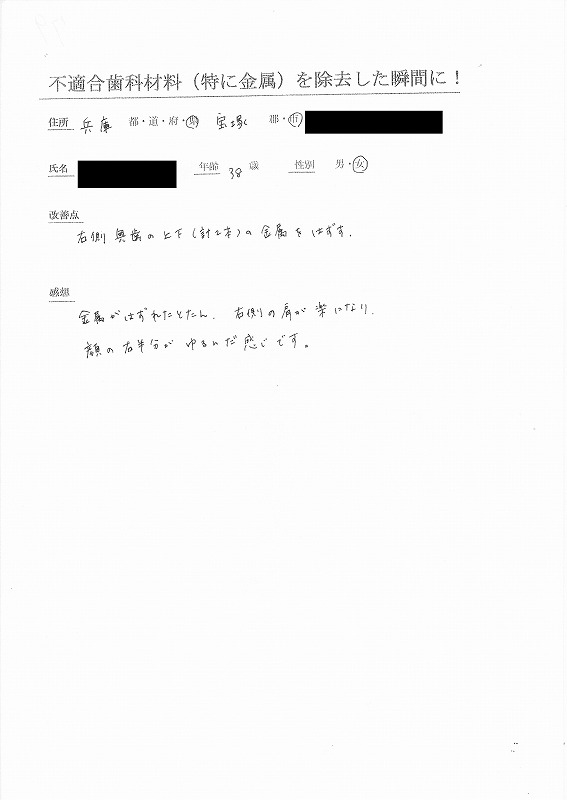 不適合歯科材料（特に金属）を除去した瞬間に！
住所 兵庫 都・道・府・県 宝塚 郡・市
氏名 年齢 38 歳 性別 男・女
改善点
右側 奥歯の上下（計2本）の金属をはずす.
感想
金属がはずれたとたん、右側の肩が楽になり、
顔の右半分が ゆるんだ感じです。